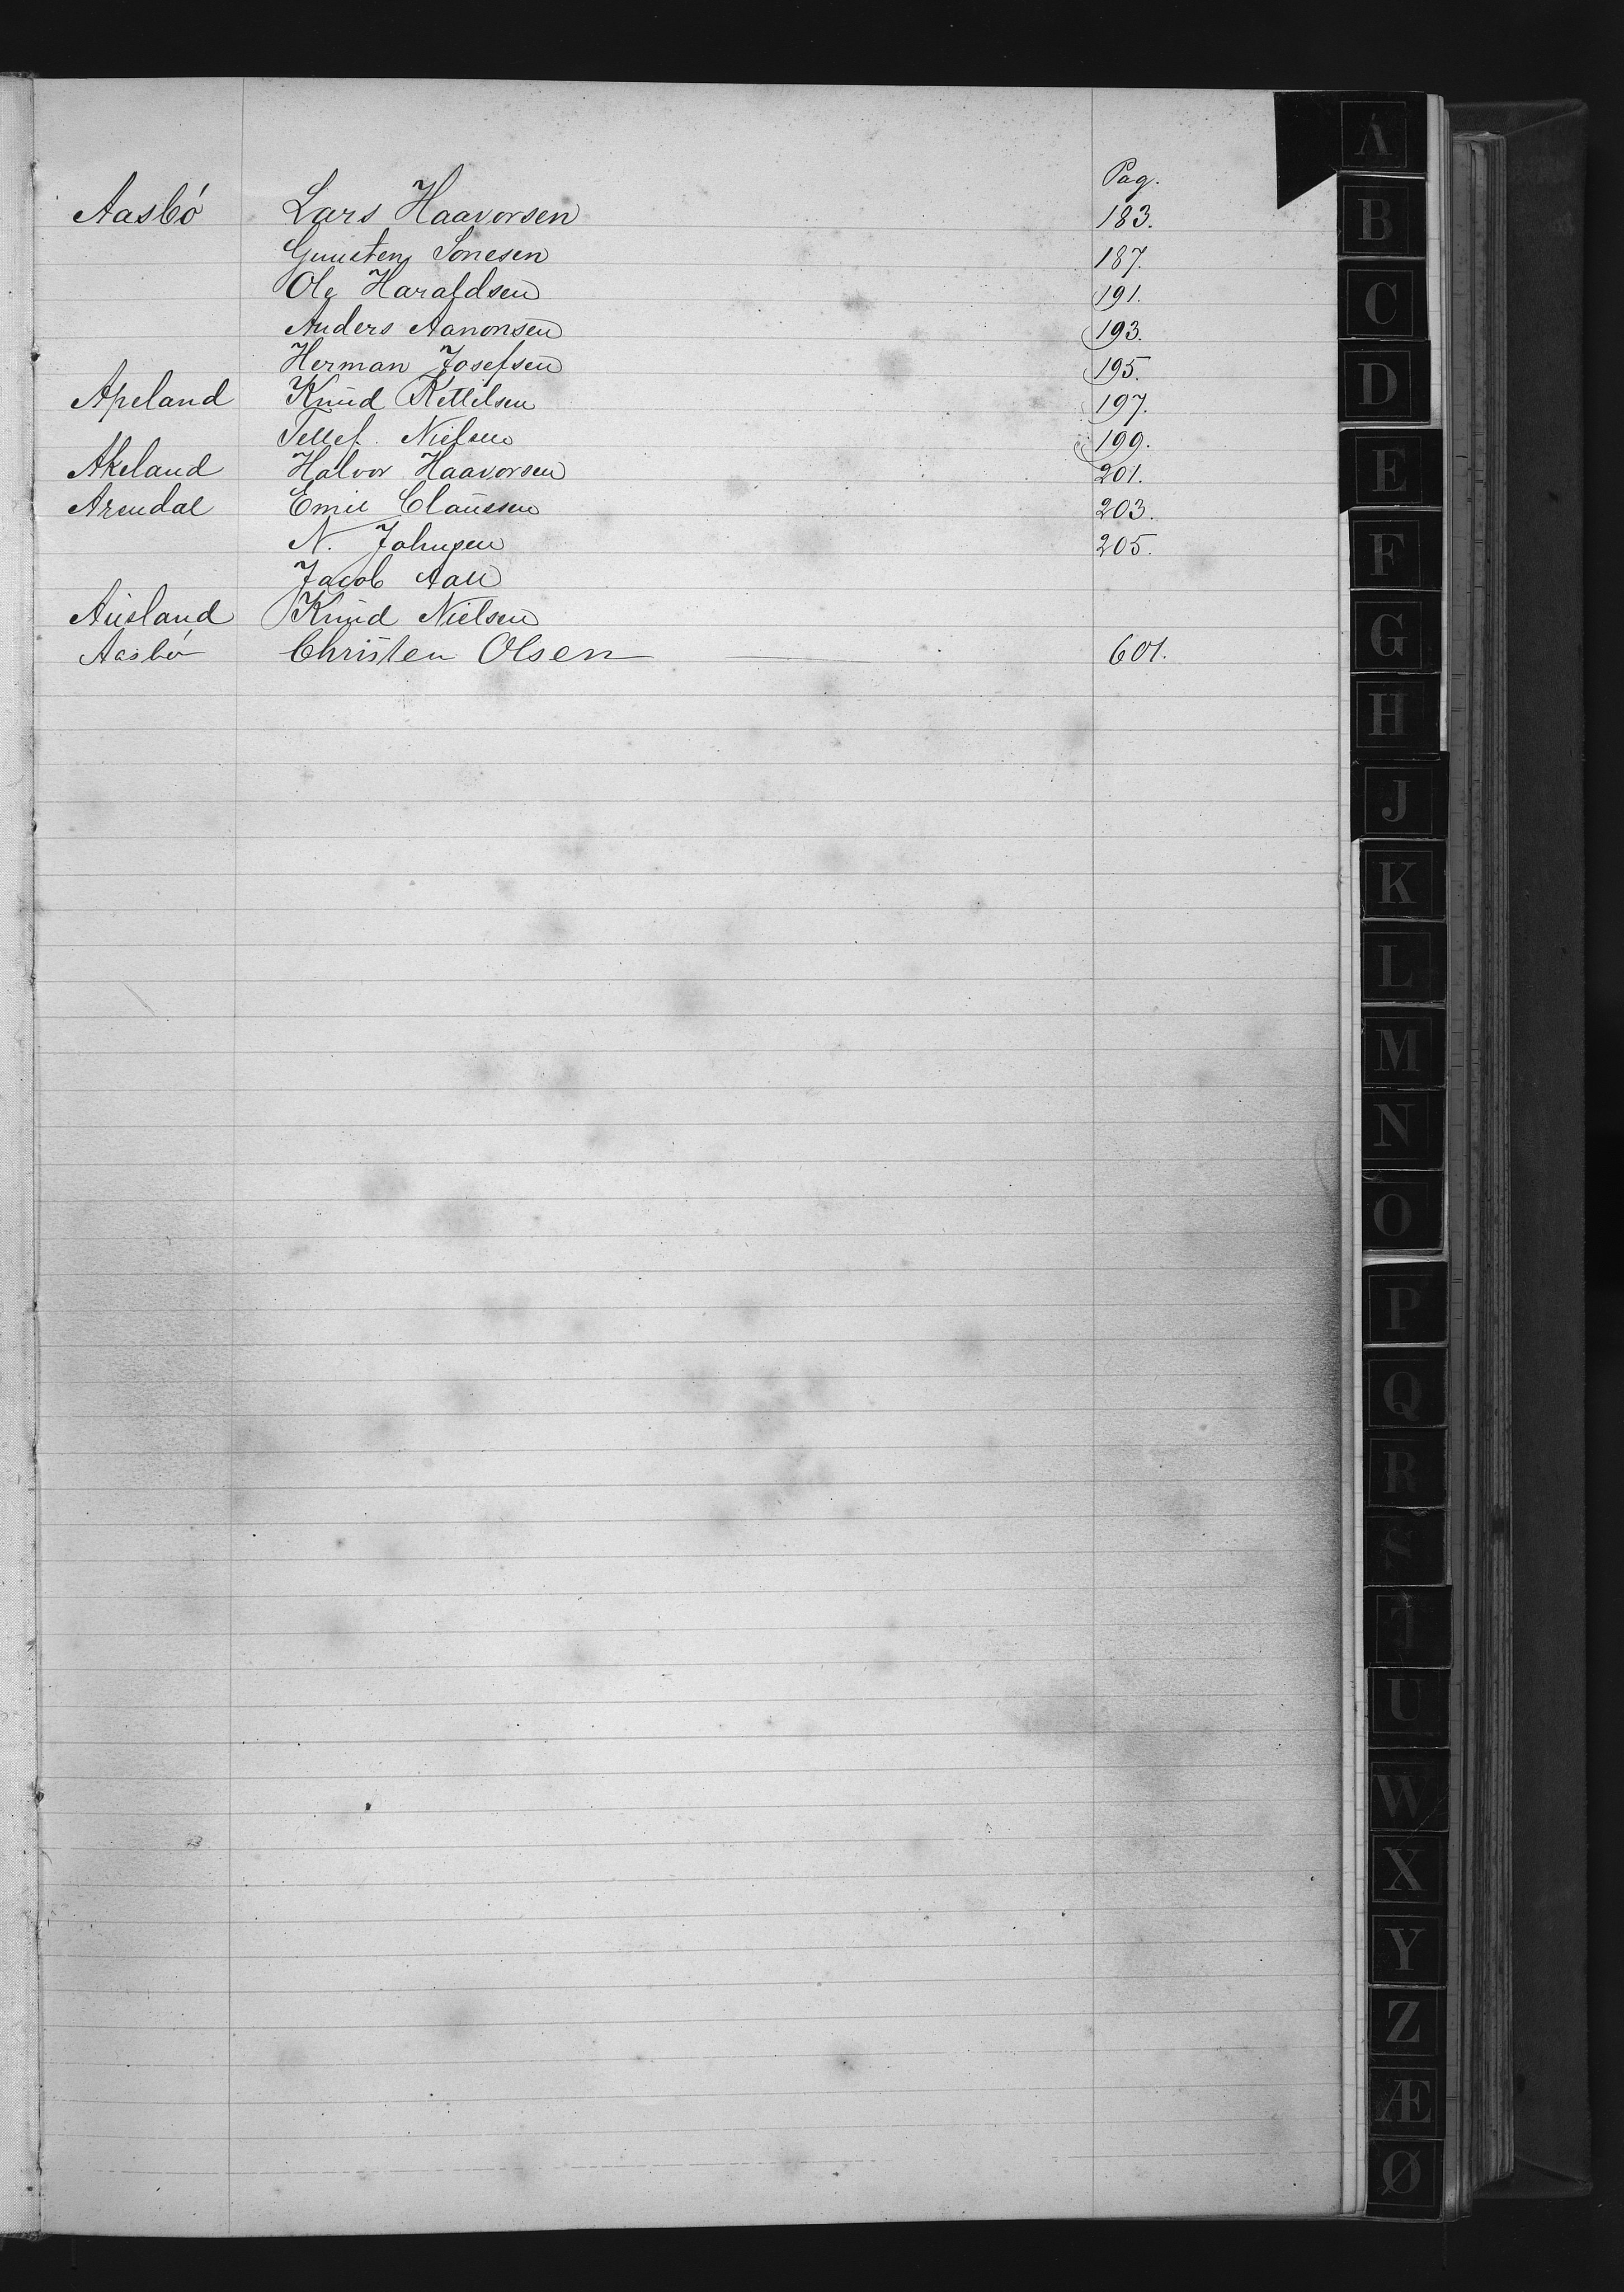 Pag.
Aasbó Lars Haavorsen 183.
Sonesen 187.
Ole Haraldsen 191.
Anders Aanonsen 193.
Herman Josefsen 195.
Apeland Knud Kettelsen 197.
Tellef Nielsen 199.
Akeland Halvor Haavorsen 201.
Arendal Emil Claussen 203.
N. Johnsen 205.
Jacob Aall
Ausland Knud Nielsen
Aasbó Christen Olsen 601.
A
B
C
D
E
F
G
H
J
K
L
M
N
O
P
Q
R
S
T
U
W
X
Y
Z
Æ
Ø